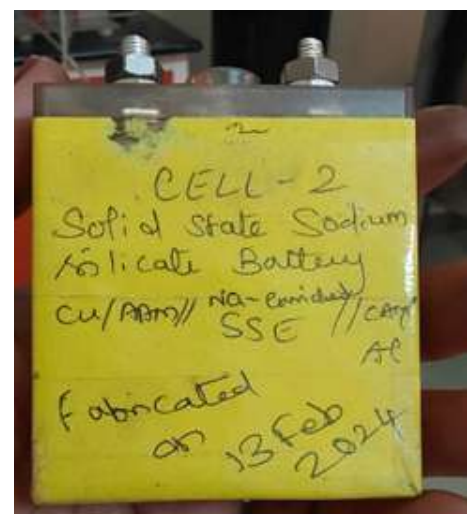 CELL-2
Solid state Sodium
silicate Battery
Cu/AAM// Na-enriched
SSE //CAM/
Al
Fabricated
on 13 Feb
2024